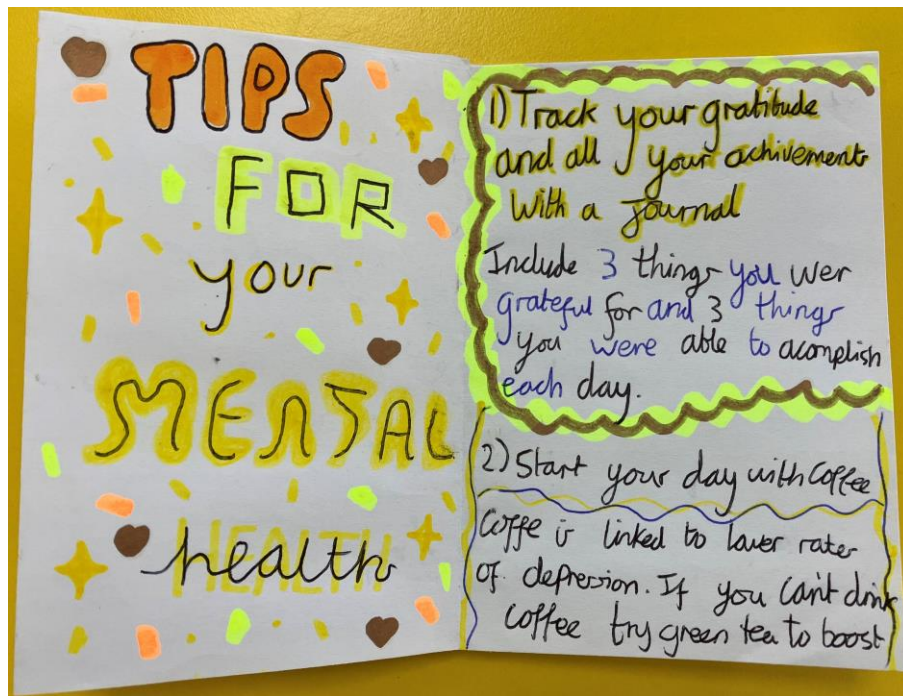 TIPS
FOR
your
MENTAL
health
1) Track your gratitude
and all your achivement
with a journal
Include 3 things you wer
grateful for and 3 things
you were able to acomplish
each day.
2) Start your day with coffee
Coffe is linked to lower rates
of depression. If you can't drink
coffee try green tea to boost